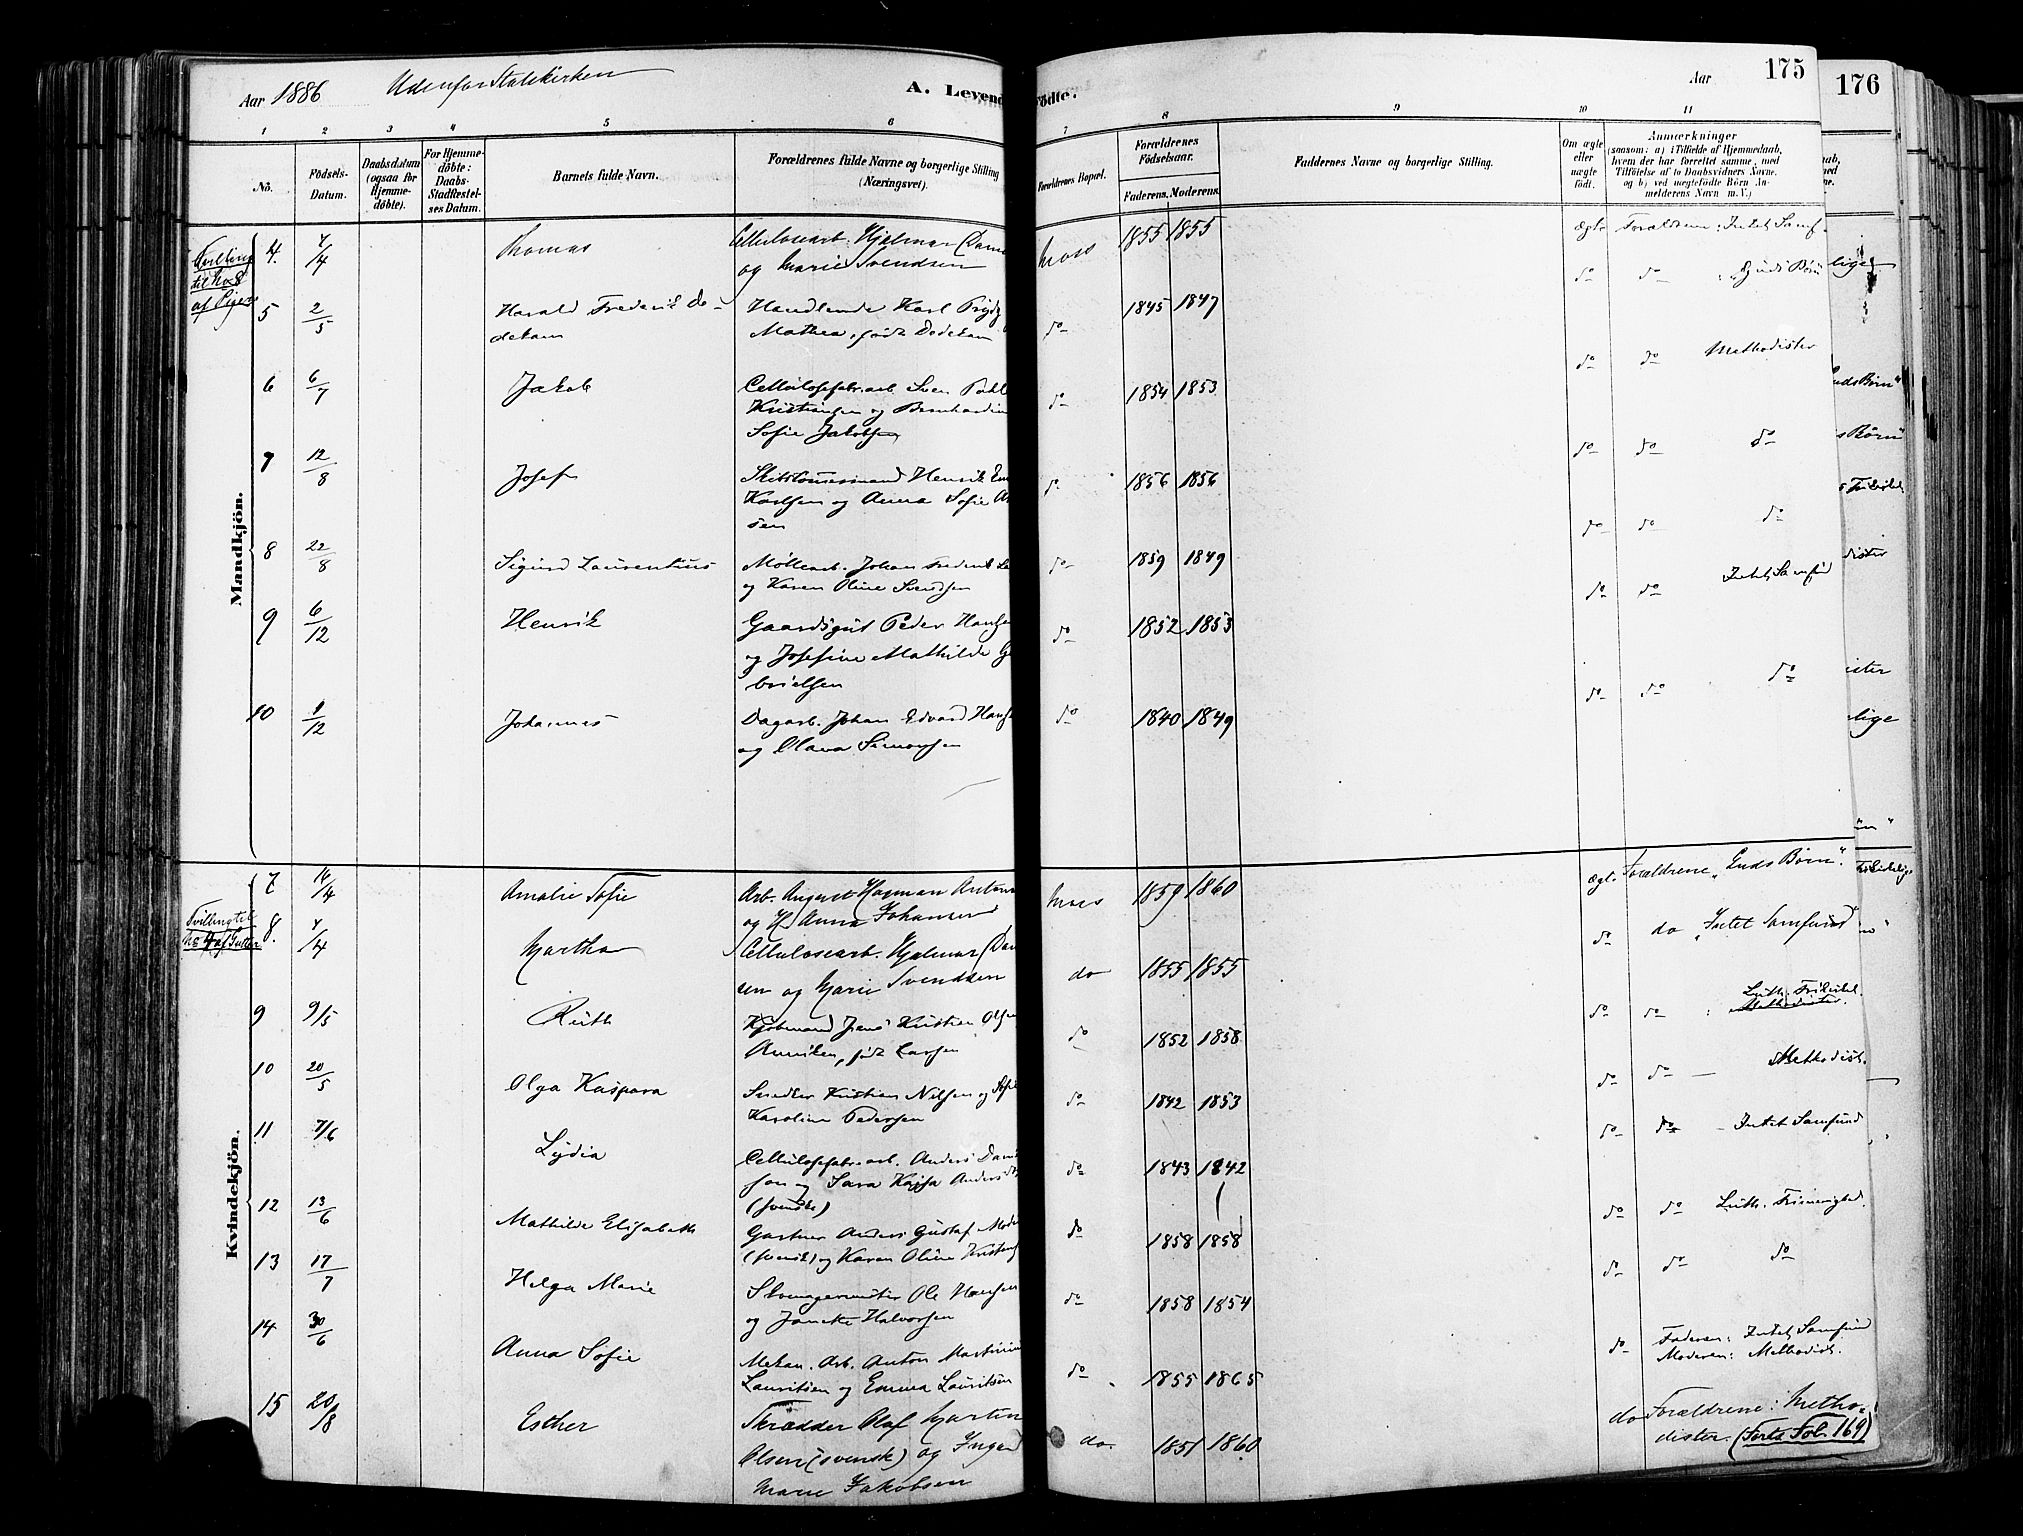 Aar 1886 Udenfor Statskirken
A. Levend
ödte.
Aar
175
176
1 2 3 4 5 6 7 8 9 10 11
No.
Födsels-
Datum.
Daabsdatum
(ogsaa for
Hjemme-
döbte).
For Hjemme-
döbte:
Daabs-
Stadfæstel-
ses Datum.
Barnets fulde Navn.
Forældrenes fulde Navne og borgerlige Stilling
(Næringsvei).
Forældrenes Bopæl.
Forældrenes
Födselsaar.
Faderens. Moderens.
Faddernes Navne og borgerlige Stilling.
Om ægte
eller
uægte
födt.
Anmærkninger
(saasom: a) i Tilfælde af Hjemmedaab,
hvem der har forrettet samme, med
Tilföielse af to Daabsvidners Navne,
og b) ved uægtefödte Börn An-
melderens Navn m. V.)
Mandkjön.
Tvilling
til No 8
af Piger
4. 4/4 Thomas
Cellulosearb. Hjalmar
og Marie Svendsen
Moss 1855 1855
ægte Foraldrene: Intet Samf-
5 2/5 Harald Frederik De-
dekam
Handlende Karl
Mathea, født Dedekam
do 1845 1847
do do : Guds Børn
6 6/7 Jakob
Cellulosefabr.arb Sven
Kristiansen og Bernhardin
Sofie Jakobsen
do 1854 1853
do do Methodister
7 12/8 Josef
Skibstømmermand Henrik
Karlsen og Anna Sofie
sen
do 1856 1856
do do do
8 22/8 Sigurd Laurentius
Møllearb. Johan Frederik
og Karen Oline Svendsen
do 1859 1849
do do do
9 6/12 Henrik
Gaardsgut Peder Hansen
og Josefine Mathilde Ga
brielsen
do 1852 1853
do do Intet Samfund
10 1/12 Johannes
Dagarb. Johan Edvard Hansen
og Olava Simonsen
do 1840 1849
do do do
Kvindekjön.
7. 14/4 Amalie Sofie
Arb. August Hagman Anton
og Anna Johansen
Moss 1859 1860
ægt. Foraldrene „Guds Børn“.
Tvilling til
No 4 af Gutter
8. 4/4 Martha
Cellulosearb. Hjalmar (Dan
sen og Marie Svendsen
do 1855 1855
do do „Intet Samfund“
9 9/5 Ruth
Kjøbmand Jens Kristian Olsen
Anniken, født Larsen
do 1852 1858
do do : Luth. Frikirkel.
Methodister.
10 20/5 Olga Kaspara
Snedker Kristian Nilsen og Sofie
Karoline Pedersen
do 1842 1853
do do — Methodist.
11 7/6 Lydia
Cellulosefabr.arb. Anders
son og Sara Kajsa Anders
(svenske)
do 1843 1842
do do - Intet Samfund
12 13/6 Mathilde Elisabeth
Gartner Anders Gustaf
(svensk) og Karen Oline Kristens
do 1858 1858
do do Luth. Frimenighed.
13 17/7 Helga Marie
Skomagermester Ole Hansen
og Halvorsen
do 1858 1854
do do do
14 30/6 Anna Sofie
Mekan. Arb. Anton Martinius
Lauritsen og Emma Lauritsen
do 1855 1865
do Faderen: Intet Samfund
Moderen: Methodist.
15 20/8 Esther
Skrædder Olaf Martin
Olsen (svensk) og Inger
Marie Jakobsen
do. 1851 1860
do Foraldrene: Metho-
dister. (Forts. Fol. 169)